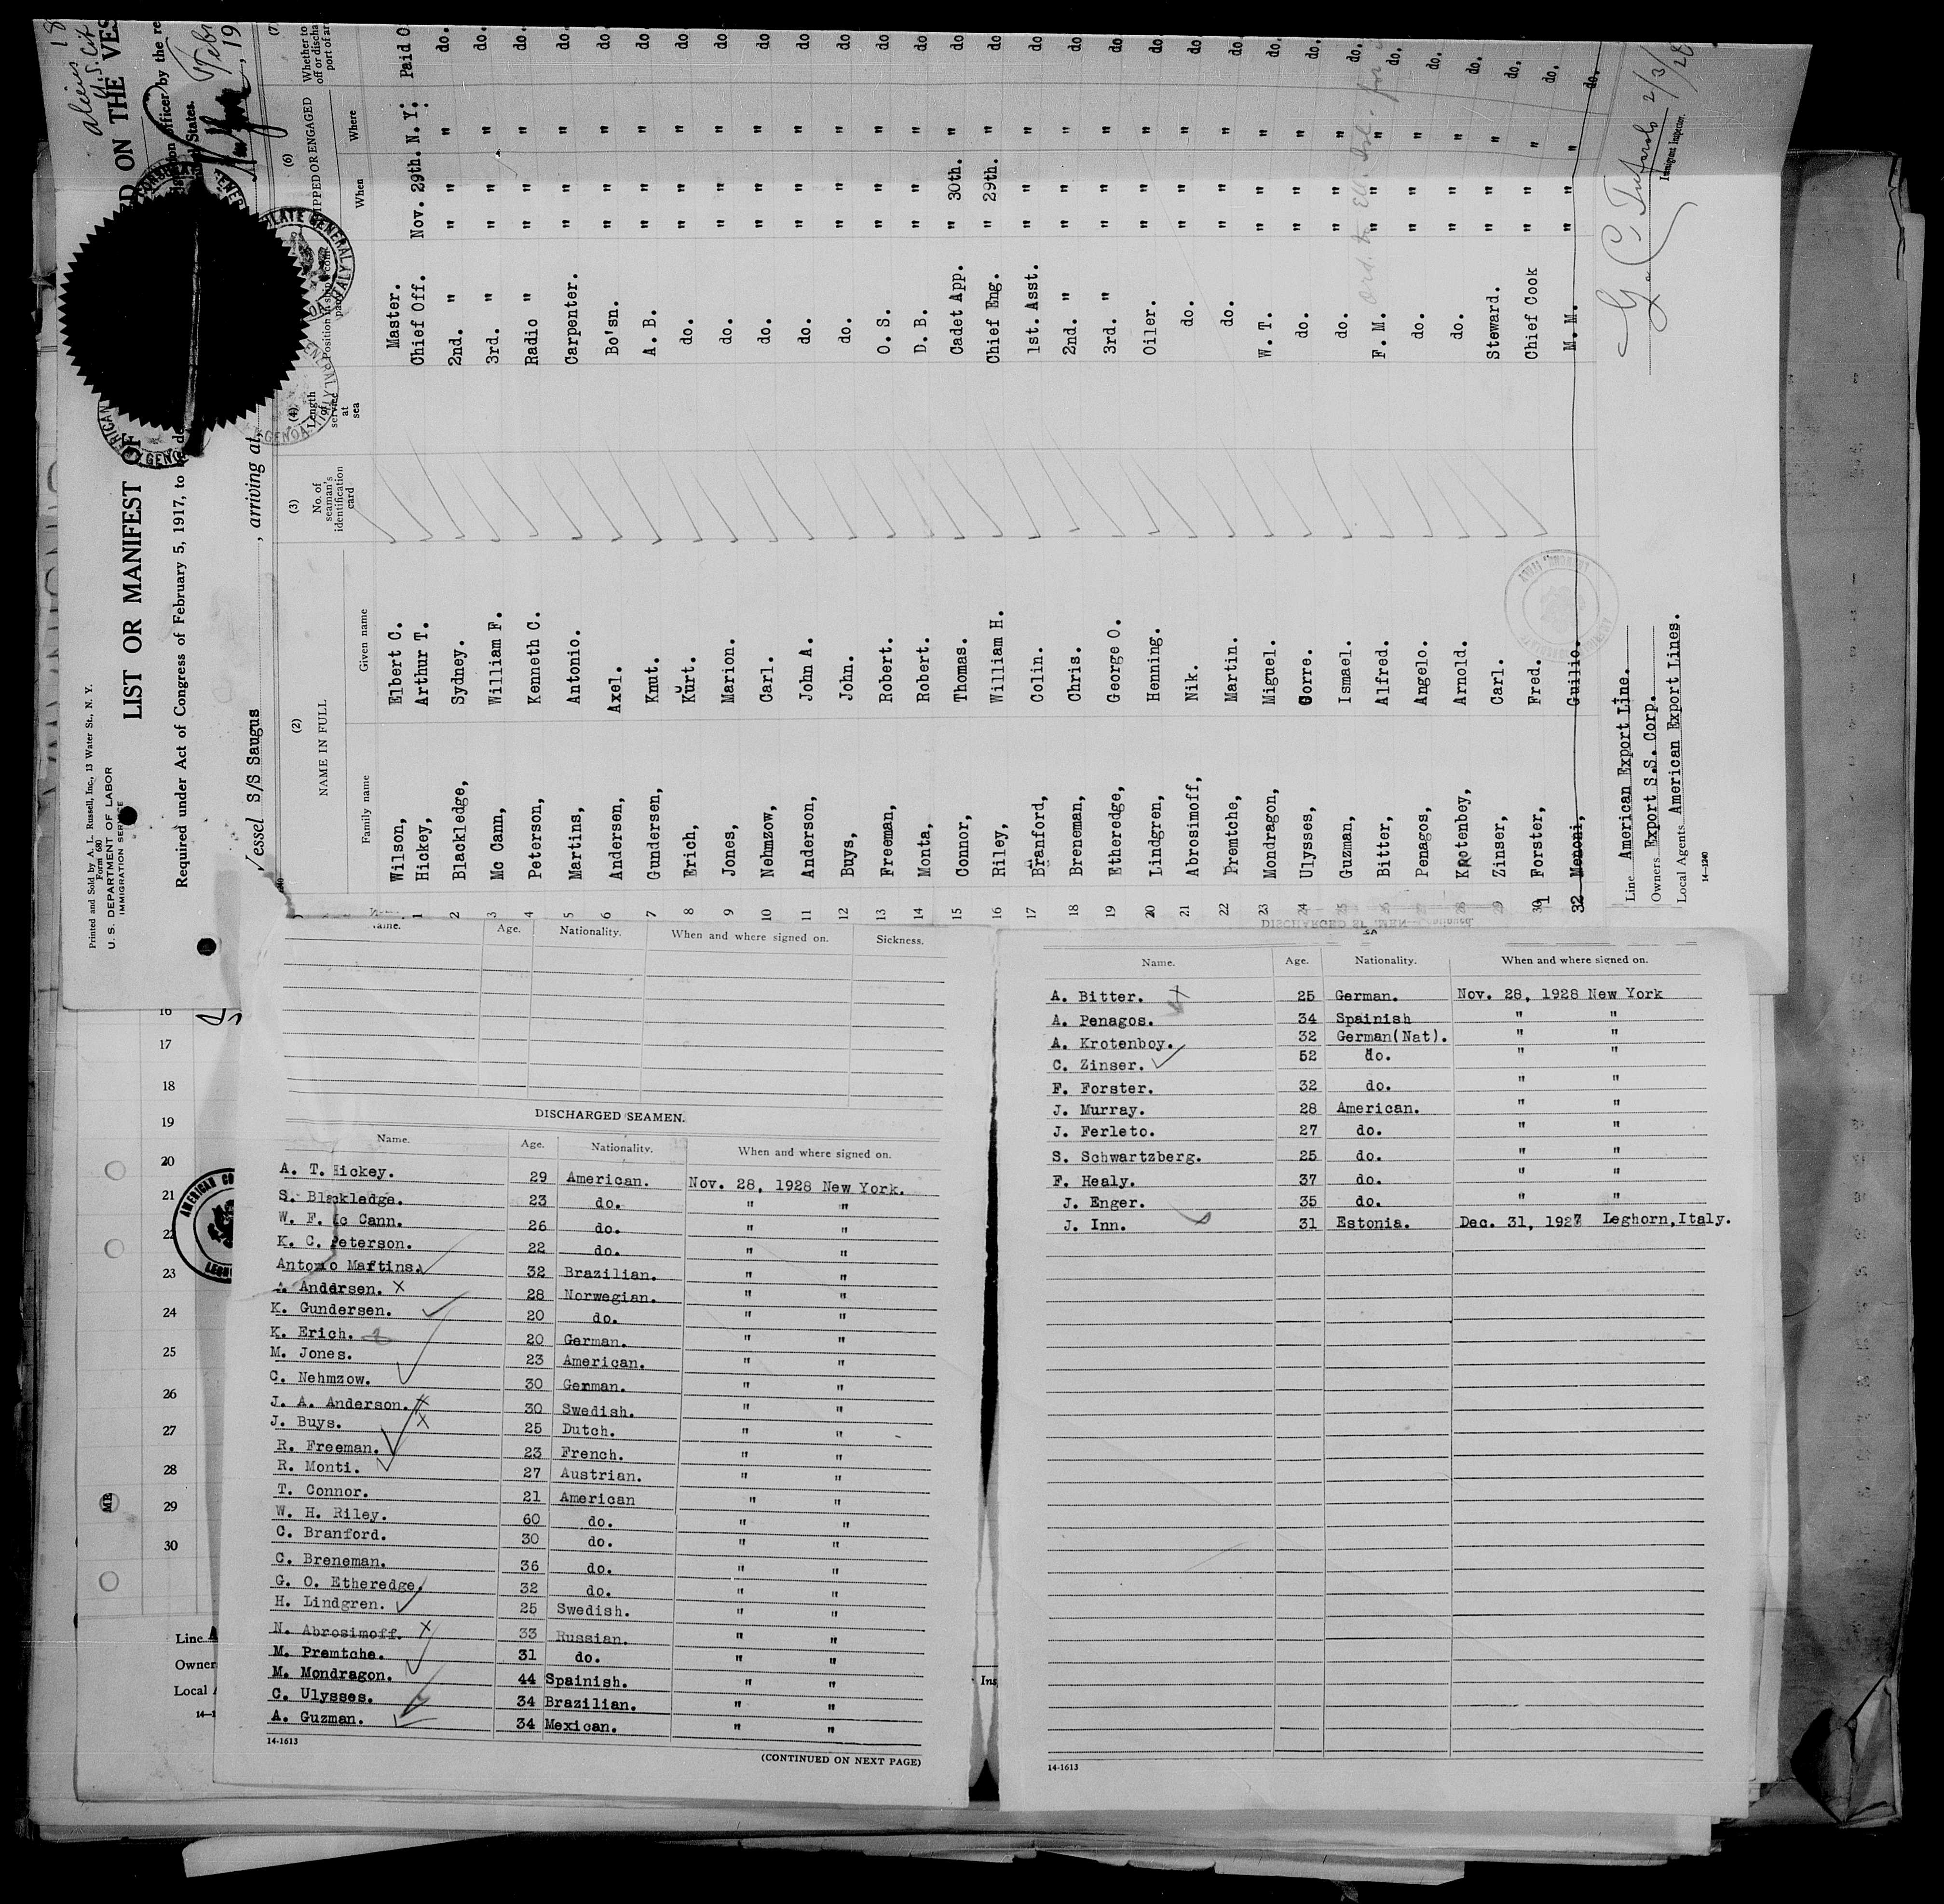 Printed and Sold by A. L. Russell, Inc., 13 Water St., N. Y.
Form 680
U. S. DEPARTMENT OF LABOR
IMMIGRATION SERVICE
LIST OR MANIFEST OF
ED ON THE VES
Aliens 18
U.S. Cit
Required under Act of Congress of February 5, 1917, to
officer by the re
States.
Febr
, 19
Vessel S/S Saugus , arriving at
(2) (3) (4) (6) (7)
NAME IN FULL
Family name Given name
No. of seaman's identification card
Length of service at sea
Position in ship's company
SHIPPED OR ENGAGED
When Where
Whether to
off or discha
port of ar
Wilson, Elbert C. Master.
1 Hickey, Arthur T. Chief Off. Nov. 29th. N. Y. Paid O
2 Blackledge, Sydney. 2nd. " " " " do.
3 Mc Cann, William F. 3rd. " " " " do.
4 Peterson, Kenneth C. Radio " " " " do.
5 Martins, Antonio. Carpenter. " " " do.
6 Andersen, Axel. Bo'sn. " " " do.
7 Gundersen, Knut. A. B. " " " do.
8 Erich, Kurt. do. " " " do.
9 Jones, Marion. do. " " " do
10 Nehmzow, Carl. do. " " " do
11 Anderson, John A. do. " " " do
12 Buys, John. do. " " " do
13 Freeman, Robert. O. S. " " " do
14 Monta, Robert. D. B. " " " do
15 Connor, Thomas. Cadet App. " 30th. " do
16 Riley, William H. Chief Eng. " 29th. " do
17 Branford, Colin. 1st. Asst. " " " do
18 Breneman, Chris. 2nd. " " " " do
19 Etheredge, George O. 3rd. " " " " do
20 Lindgren, Henning. Oiler. " " " do
21 Abrosimoff, Nik. do. " " " do
22 Premtche, Martin. do. " " " do.
23 Mondragon, Miguel. W. T. " " " do.
24 Ulysses, Gorre. do. " " " do.
25 Guzman, Ismael. do. " " " do.
26 Bitter, Alfred. F. M. " " " do.
27 Penagos, Angelo. do. " " " do.
28 Krotenbey, Arnold. do. " " " do.
29 Zinser, Carl. Steward. " " " do.
30 Forster, Fred. Chief Cook " " " do.
32 Menoni, Guilio. M. M. " " " do.
Line American Export Line.
Owners Export S.S. Corp.
Local Agents American Export Lines.
14-1240
2/3/28
Immigrant Inspector.
Name. Age. Nationality. When and where signed on. Sickness.
DISCHARGED SEAMEN.
Name. Age. Nationality. When and where signed on.
A. T. Hickey. 29 American. Nov. 28, 1928 New York.
S. Blackledge. 23 do. " "
W. F. Mc Cann. 26 do. " "
K. C. Peterson. 22 do. " "
Antonio Martins. 32 Brazilian. " "
A. Andersen. X 28 Norwegian. " "
K. Gundersen. 20 do. " "
K. Erich. 20 German. " "
M. Jones. 23 American. " "
C. Nehmzow. 30 German. " "
J. A. Anderson. X 30 Swedish. " "
J. Buys. X 25 Dutch. " "
R. Freeman. 23 French. " "
R. Monti. 27 Austrian. " "
T. Connor. 21 American " "
W. H. Riley. 60 do. " "
C. Branford. 30 do. " "
C. Breneman. 36 do. " "
G. O. Etheredge. 32 do. " "
H. Lindgren. 25 Swedish. " "
N. Abrosimoff. X 33 Russian. " "
M. Premtche. 31 do. " "
M. Mondragon. 44 Spainish. " "
C. Ulysses. 34 Brazilian. " "
A. Guzman. 34 Mexican. " "
14-1613
(CONTINUED ON NEXT PAGE)
Name. Age. Nationality. When and where signed on.
A. Bitter. X 25 German. Nov. 28, 1928 New York
A. Penagos. 34 Spainish " "
A. Krotenboy. 32 German(Nat). " "
C. Zinser. 52 do. " "
F. Forster. 32 do. " "
J. Murray. 28 American. " "
J. Ferleto. 27 do. " "
S. Schwartzberg. 25 do. " "
F. Healy. 37 do. " "
J. Enger. 35 do. " "
J. Inn. 31 Estonia. Dec. 31, 1927 Leghorn,Italy.
14-1613
16
17
18
19
20
21
22
23
24
25
26
27
28
29
30
Line A
Owner
Local
14-1
Ins
AMERICAN CO